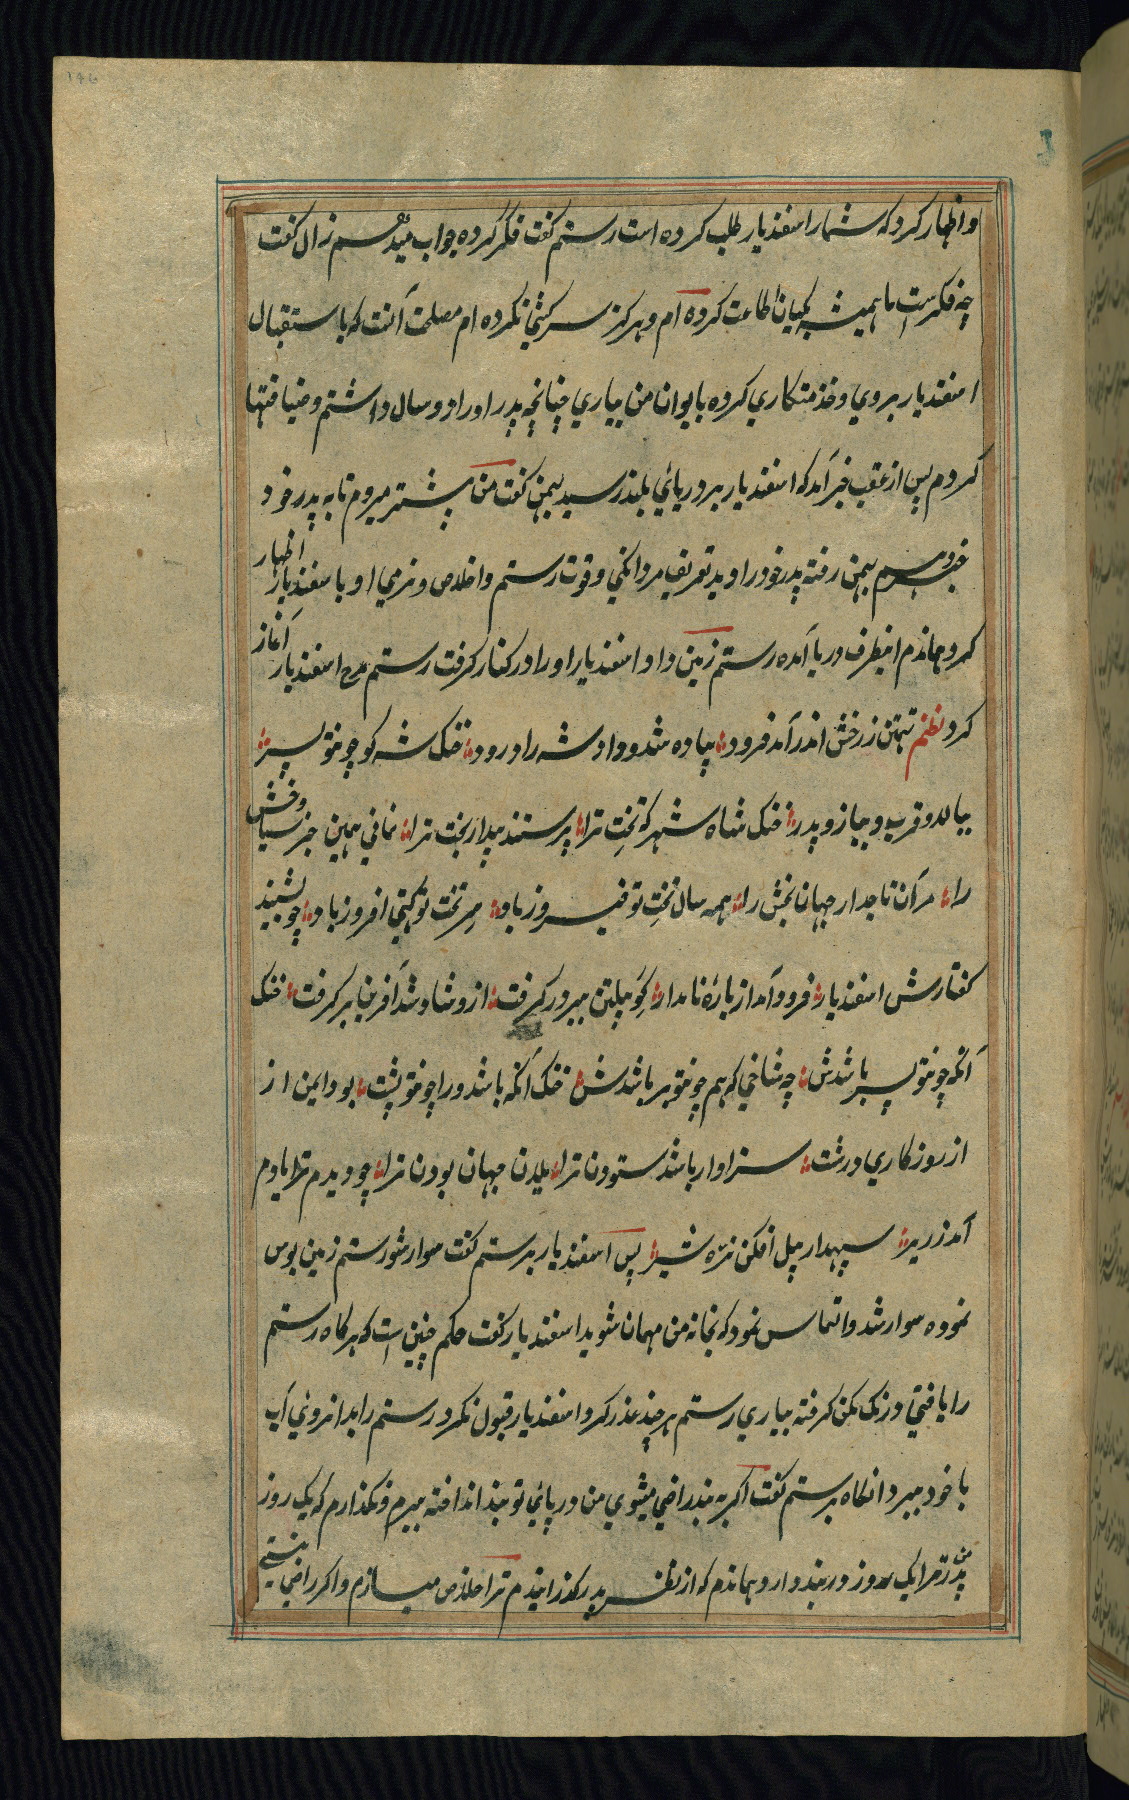 ۱۴۵
و اظهار کرد که شما را اسفندیار طلب کرده است رستم کفت فکر کرده جواب میدهم زال کفت
چه فکرست ما همیشه کیان اطاعت کرده ام و هرکز سرکشی نکرده ام مصلحت آنست که باستقبال
اسفندیار بروی و خذمتکاري کرده بایوان من بیاري چنانچه پدر او را دو سال داشتم و ضیافتها
کردم پس از عقب خبر آمد که اسفندیار بر دریائي بلند رسید بهمن کفت من پیشتر میروم تا به پدر خود
خبر دهم بهمن رفته پدر خود را دید تعریف مردانکي و قوت رستم و اخلاص و نرمي او باسفندیار اظهار
کرد هماندم اینطرف دریا آمده رستم زمین داد اسفندیار او را در کنار کرفت رستم مدح اسفندیار آغاز
کرد نظم تهمتن ز رخش اندر آمد فرود پیاده شد و داد شه را درود خنک شه کو چو تو پسر
ببالد و قرب و بیازد پدر خنک شاه شهر که تخت ترا پرستند بیدار بخت ترا نماني همین جز سیاوخش
را مر آن تاجدار جهان بخش را همه سال تخت تو فیروز باد سر تخت تو کیتي افروز باد چو بشنید
کفتارش اسفندیار فرود آمد از بارهٔ نامدار کو پیلتن ببر در کرفت ازو شاد شد آفرین بر کرفت خنک
آنکه چو تو پسر باشدش چه شاخي که هم چو تو بر باشدش خنک آنکه باشد ورا چو تو پشت بود ایمن از
از روزکاري درشت سزاوار باشد ستودن ترا یلان جهان بودن ترا چو دیدم ترا یادم
آمد زریر سپهدار پیل افکن نره شیر پس اسفندیار برستم کفت سوار شو رستم زمین بوس
نموده سوار شد و التماس نمود که بخانه من مهمان شوید اسفندیار کفت حکم چنین است که هرکاه رستم
را یافتي درنک مکن کرفته بیاري رستم هر چند عذر کرد اسفندیار قبول نکرد رستم را بدانروئي آب
با خود ببرد آنکاه برستم کفت اکر به بند راضي میشوي من در پائي تو بند انداخته میبرم و نکذارم که یک روز
من پدر ترا یک روز در بند دارد هماندم که از نظر پدر کذرانیدم ترا خلاص میسازم و اکر راضي نیستي